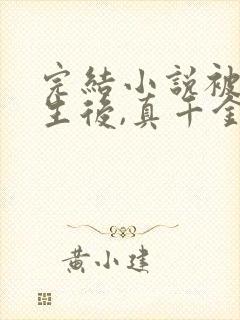 完結小說被
生後,真千金
黄小建